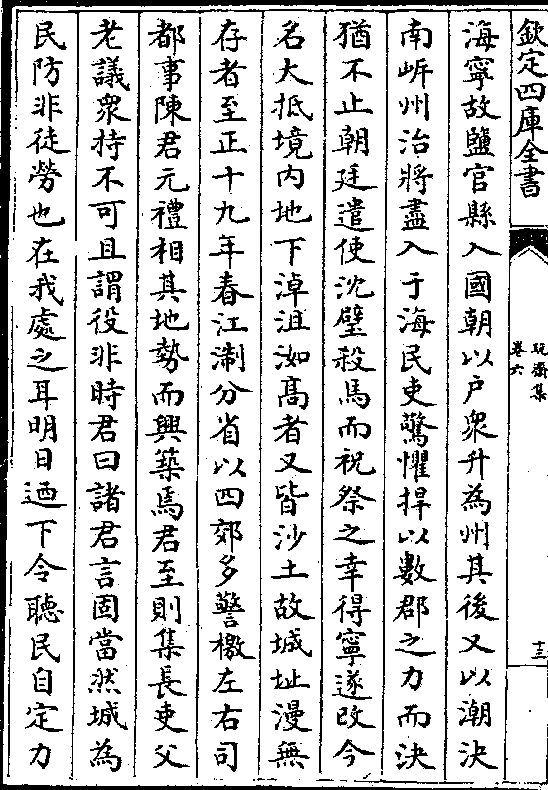 欽定四庫全書
玩齋集
卷六
十三
海寧故鹽官縣入國朝以户衆升為州其後又以潮決
南㟁州治將盡入于海民吏驚懼捍以數郡之力而決
猶不止朝廷遣使沈璧殺馬而祝祭之幸得寧遂改今
名大抵境内地下淖沮洳高者又皆沙土故城址漫無
存者至正十九年春江淛分省以四郊多警檄左右司
都事陳君元禮相其地勢而興築焉君至則集長吏父
老議衆持不可且謂役非時君曰諸君言固當然城為
民防非徒勞也在我處之耳明日迺下令聽民自定力